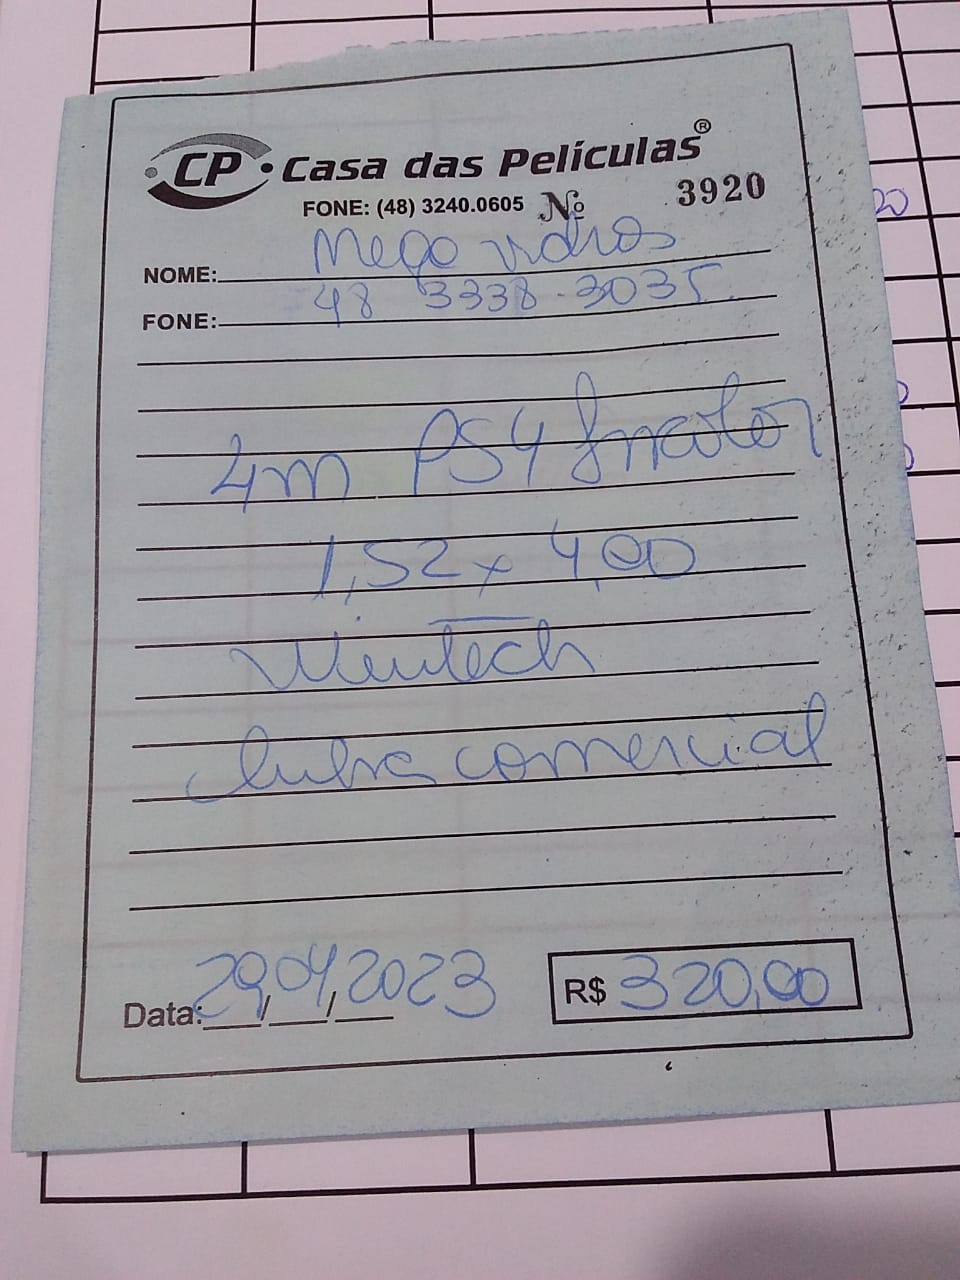 CP Casa das Películas®
FONE: (48) 3240.0605 Nº 3920
NOME: Mega vidros
FONE: 48 3338-3035
4m PS4 Incolor
1,52 x 4,00
Wintech
comercial
Data: 29/04/2023 R$ 320,00